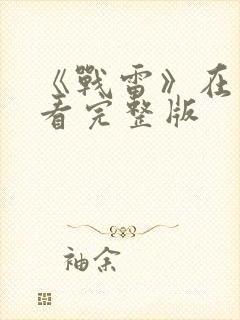 《戰雷》在
看完整版
袖余